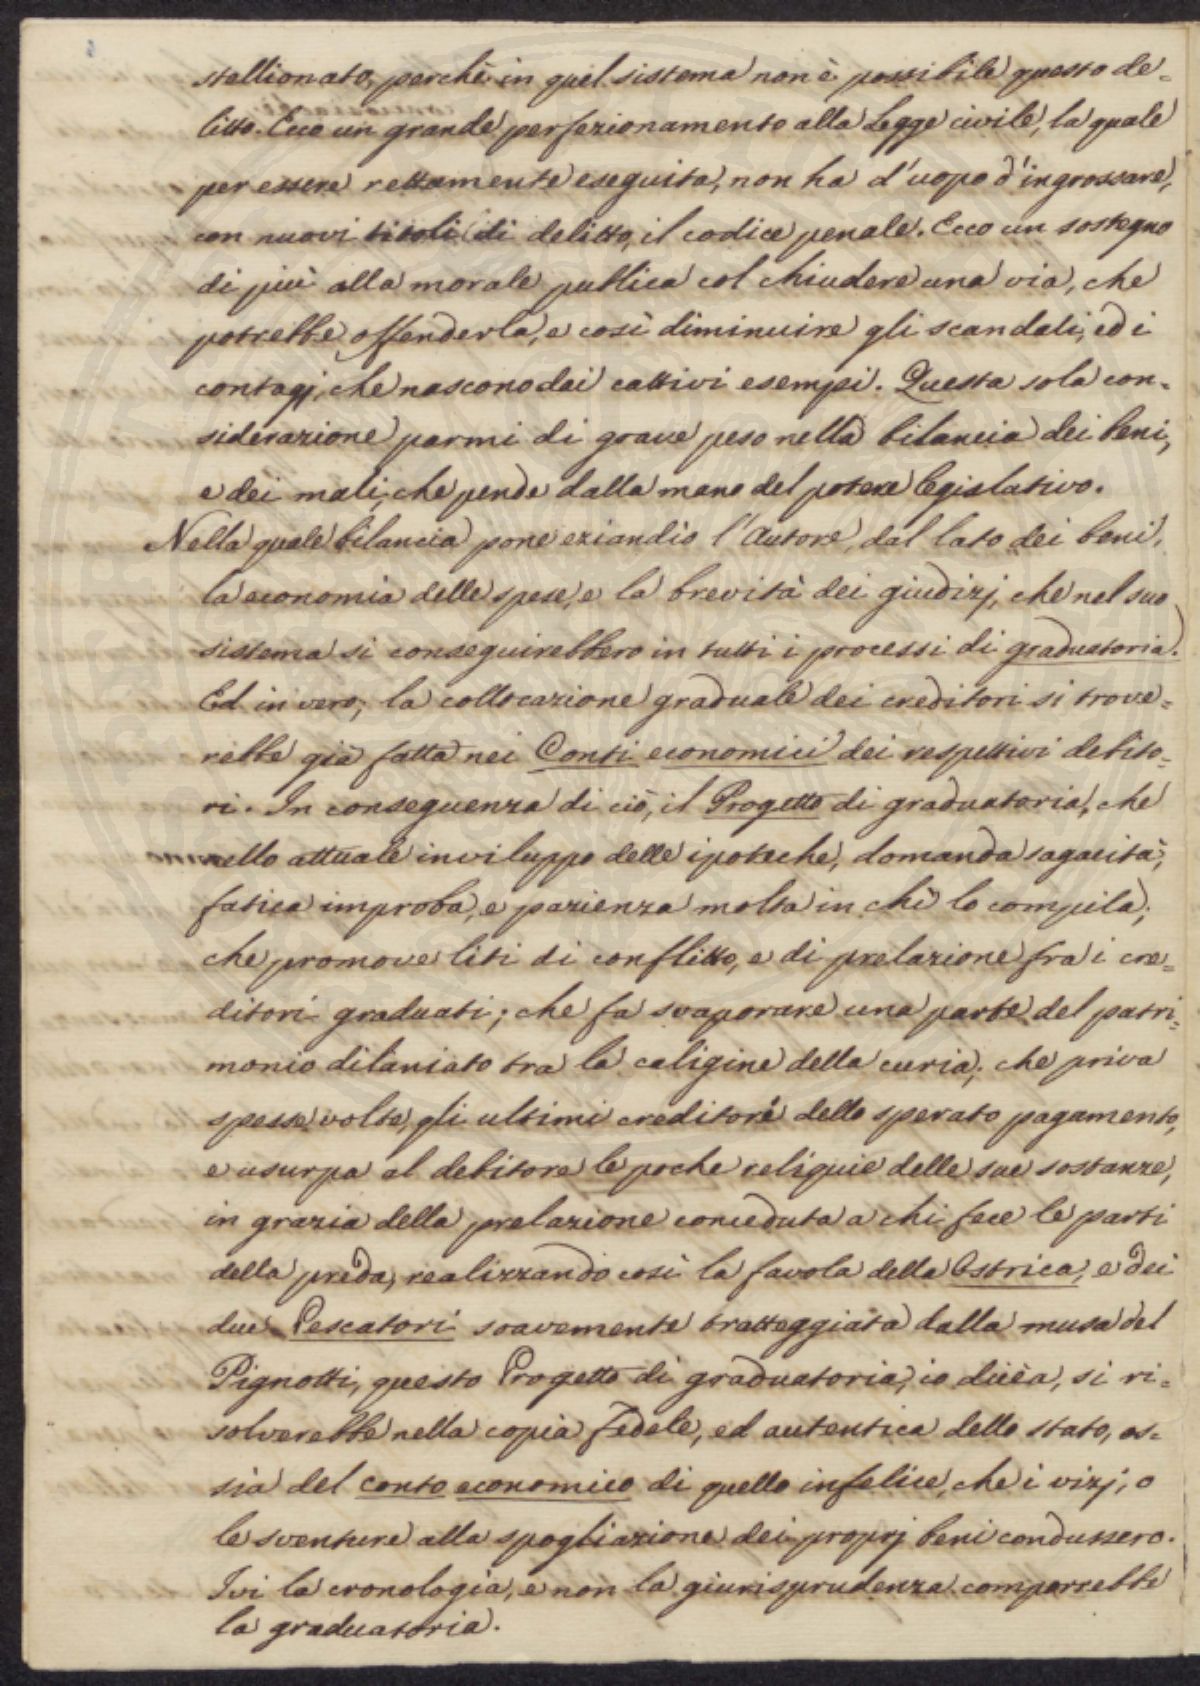 stellionato, perchè in quel sistema non è possibile questo de=
litto. Ecco un grande perfezionamento alla Legge civile, la quale
per essere rettamente eseguita, non ha d'uopo d'ingrossare,
con nuovi titoli di delitto, il codice penale. Ecco un sostegno
di più alla morale publica col chiudere una via, che
potrebbe offenderla, e così diminuire gli scandali, ed i
contagj, che nascono dai cattivi esempi. Questa sola con=
siderazione parmi di grave peso nella bilancia dei beni,
e dei mali, che pende dalla mano del potere legislativo.
Nella quale bilancia pone eziandìo l'Autore, dal lato dei beni,
la economia delle spese, e la brevità dei giudizj, che nel suo
sistema si conseguirebbero in tutti i processi di graduatoria.
Ed in vero, la collocazione graduale dei creditori si trove=
rebbe già fatta nei Conti economici dei respettivi debito=
ri. In conseguenza di ciò, il Progetto di graduatoria, che
nello attuale inviluppo delle ipoteche, domanda sagacità,
fatica improba, e pazienza molta in chi lo compila;
che promove liti di conflitto, e di prelazione fra i cre=
ditori graduati; che fa svaporare una parte del patri=
monio dilaniato tra la caligine della curia; che priva
spesse volte gli ultimi creditori dello sperato pagamento,
e usurpa al debitore le poche reliquie delle sue sostanze,
in grazia della prelazione conceduta a chi fece le parti
della preda, realizzando così la favola della Ostrica, e dei
due Pescatori soavemente tratteggiata dalla musa del
Pignotti, questo Progetto di graduatoria, io dicèa, si ri=
solverebbe nella copia fedele, ed autentica dello stato, os=
sia del conto economico di quello infelice, che i vizj, o
le sventure alla spogliazione dei proprj beni condussero.
Ivi la cronologia, e non la giurisprudenza comporrebbe
la graduatoria.